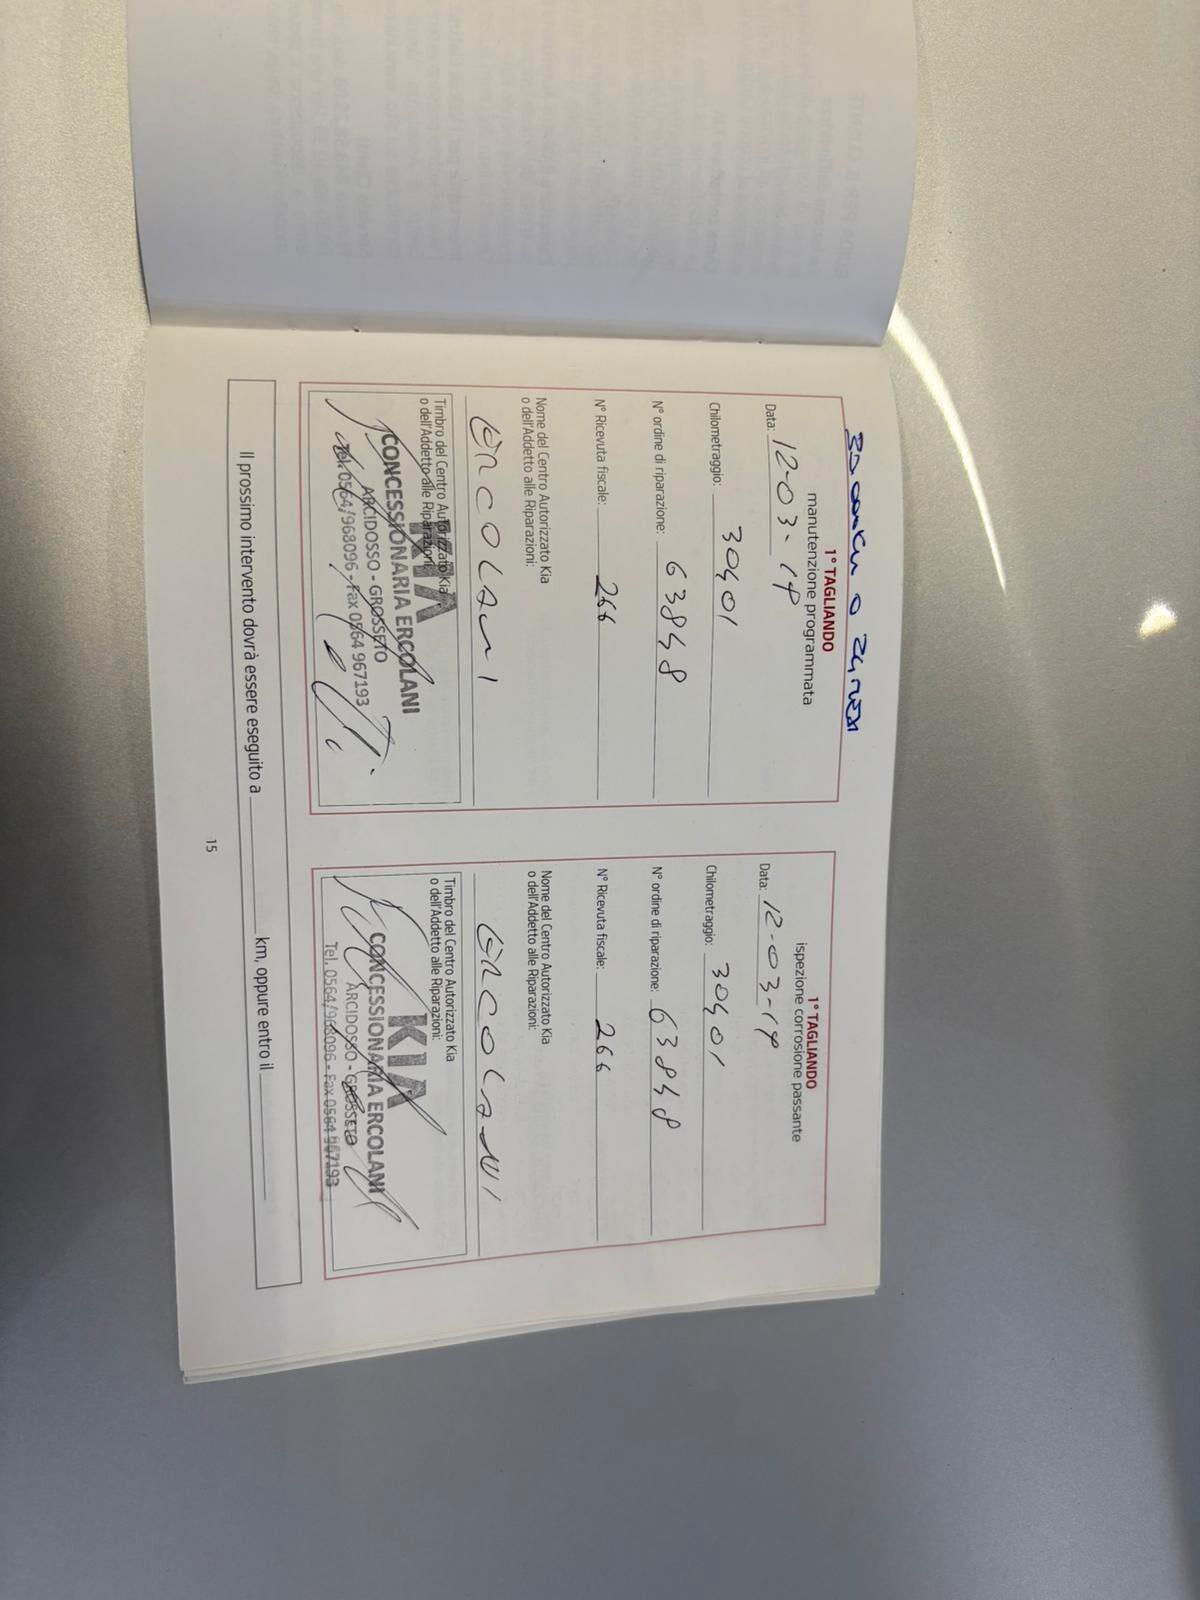 30.000 km o 24 mesi
1° TAGLIANDO
manutenzione programmata
Data: 12-03-14
Chilometraggio: 30401
N° ordine di riparazione: 63848
N° Ricevuta fiscale: 266
Nome del Centro Autorizzato Kia
o dell'Addetto alle Riparazioni:
ERCOLANI
Timbro del Centro Autorizzato Kia
o dell'Addetto alle Riparazioni:
KIA
CONCESSIONARIA ERCOLANI
ARCIDOSSO - GROSSETO
Tel. 0564/968096 - Fax 0564 967193
1° TAGLIANDO
ispezione corrosione passante
Data: 12-03-14
Chilometraggio: 30401
N° ordine di riparazione: 63848
N° Ricevuta fiscale: 266
Nome del Centro Autorizzato Kia
o dell'Addetto alle Riparazioni:
ERCOLANI
Timbro del Centro Autorizzato Kia
o dell'Addetto alle Riparazioni:
KIA
CONCESSIONARIA ERCOLANI
ARCIDOSSO - GROSSETO
Tel. 0564/968096 - Fax 0564 967193
Il prossimo intervento dovrà essere eseguito a km, oppure entro il
15